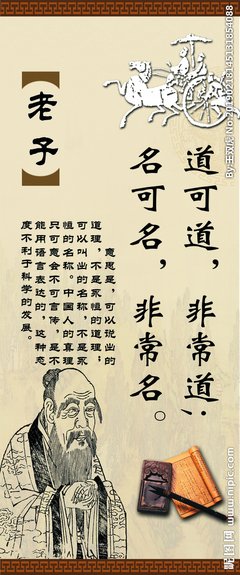 道可道，非常道；
名可名，非常名。
【老子】
意思是，可以说出的
道理，不是永恒的道理；
可以叫出的名称，不是永
恒的名称。中国人的真理
只可意会不可言传，是不
能用语言表达的，这种态
度不利于科学的发展。
昵图网 www.nipic.com